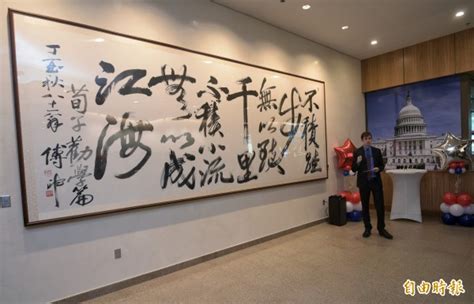 不積跬
步
無以致
千里
不積小流
無以成
江海
荀子勸學篇
丁酉秋八十
傅申
自由時報